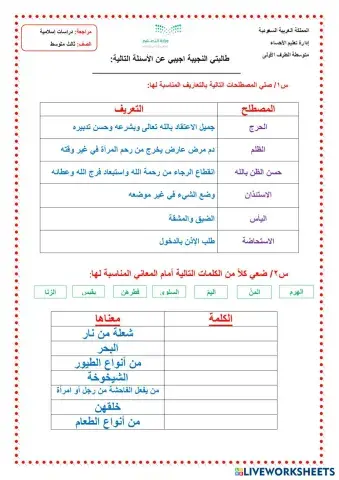 المملكة العربية السعودية
إدارة تعليم الأحساء
متوسطة الطرف الأولى
وزارة التعليم
مراجعة: دراسات إسلامية
الصف: ثالث متوسط
طالبتي النجيبة أجيبي عن الأسئلة التالية:
س١/ صلي المصطلحات التالية بالتعاريف المناسبة لها:
المصطلح التعريف
الحرج جميل الاعتقاد بالله تعالى وبشرعه وحسن تدبيره
الظلم دم مرض عارض يخرج من رحم المرأة في غير وقته
حسن الظن بالله انقطاع الرجاء من رحمة الله واستبعاد فرج الله وعطائه
الاستئذان وضع الشيء في غير موضعه
اليأس الضيق والمشقة
الاستحاضة طلب الأذن بالدخول
س٢/ ضعي كلاً من الكلمات التالية أمام المعاني المناسبة لها:
الهرم المنّ اليمّ السلوى فطرهن بقبس الزنا
الكلمة معناها
شعلة من نار
البحر
من أنواع الطيور
الشيخوخة
من يفعل الفاحشة من رجل أو امرأة
خلقهن
من أنواع الطعام
LIVEWORKSHEETS